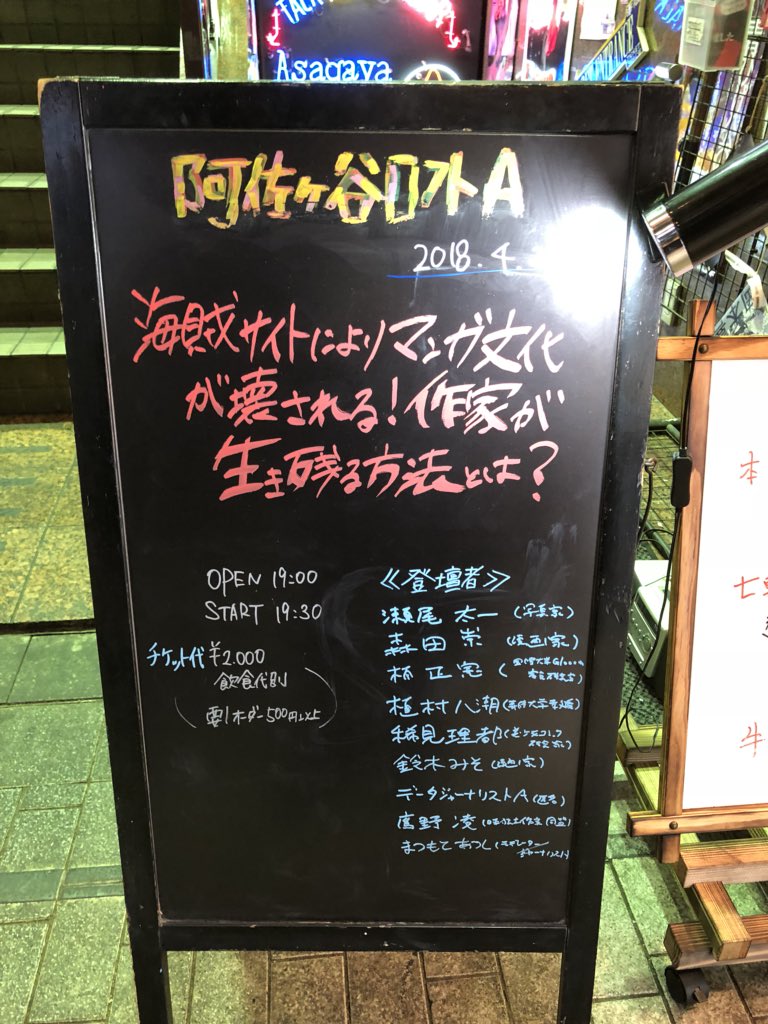 Asagaya
阿佐ヶ谷ロフトA
2018.4.
海賊サイトによりマンガ文化
が壊される!作家が
生き残る方法とは?
OPEN 19:00
START 19:30
チケット代 ¥2.000
飲食代別
(要1オーダー500円以上)
≪登壇者≫
瀬尾 太一(写真家)
森田 崇(漫画家)
植村八潮
鈴木みそ(漫画家)
データジャーナリストA(匿名)
鷹野 凌
まつもとあつし
本
七
牛